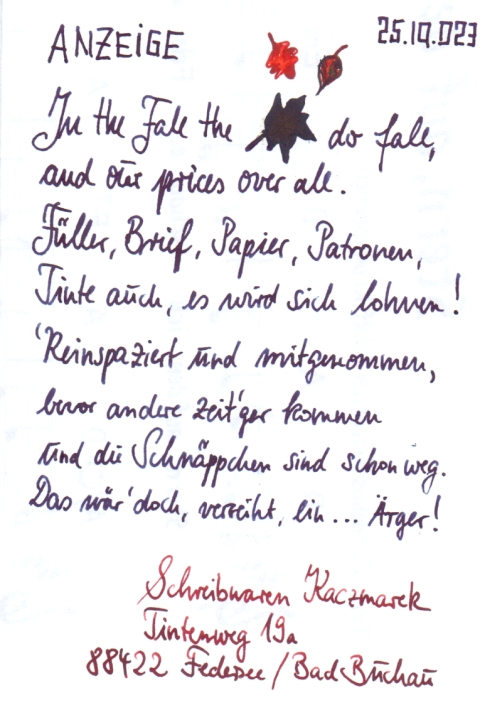 ANZEIGE
25.10.023
In the Fall the do fall,
and our prices over all.
Füller, Brief, Papier, Patronen,
Tinte auch, es wird sich lohnen!
'Reinspaziert und mitgenommen,
bevor andere zeit'ger kommen
und die Schnäppchen sind schon weg.
Das wär' doch, verzeiht, ein... Ärger!
Schreibwaren Kaczmarek
Tintenweg 19a
88422 Federsee/Bad Buchau